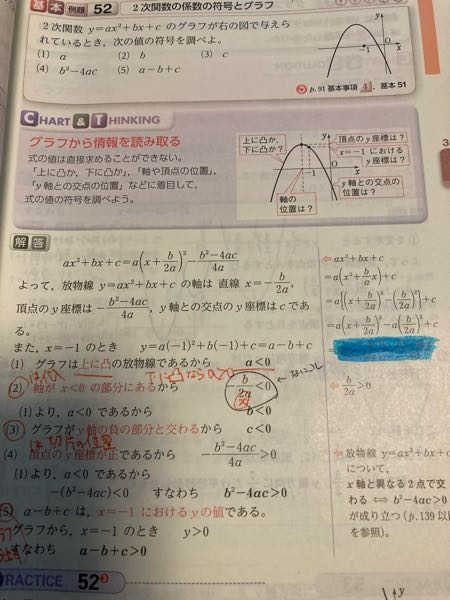 基本 例題 52 2次関数の係数の符号とグラフ
2次関数 y=ax²+bx+c のグラフが右の図で与えら
れているとき，次の値の符号を調べよ。
(1) a (2) b (3) c
(4) b²−4ac (5) a−b+c
y
−1
x
p.91 基本事項 4，基本 51
CHART & THINKING
グラフから情報を読み取る
式の値は直接求めることができない。
「上に凸か，下に凸か」，「軸や頂点の位置」，
「y軸との交点の位置」などに着目して，
式の値の符号を調べよう。
上に凸か，
下に凸か？
頂点のy座標は？
x=−1 における
y座標は？
−1
x
軸の
位置は？
y軸との交点の
位置は？
解答
ax²+bx+c=a(x+b/2a)²−(b²−4ac)/4a
よって，放物線 y=ax²+bx+c の軸は 直線 x=−b/2a，
頂点のy座標は −(b²−4ac)/4a，y軸との交点のy座標は c であ
る。
また，x=−1 のとき y=a(−1)²+b(−1)+c=a−b+c
(1) グラフは上に凸の放物線であるから a<0
下に凸ならa>0
(2) 軸が x<0 の部分にあるから −b/2a<0
(1)より，a<0 であるから b<0
(3) グラフがy軸の負の部分と交わるから c<0
は切片の位置
(4) 頂点のy座標が正であるから −(b²−4ac)/4a>0
(1)より，a<0 であるから
−(b²−4ac)<0 すなわち b²−4ac>0
(5) a−b+c は，x=−1 におけるyの値である。
グラフから，x=−1 のとき y>0
すなわち a−b+c>0
⇐ax²+bx+c
=a(x²+b/a x)+c
=a{(x+b/2a)²−(b/2a)²}+c
=a(x+b/2a)²−a(b/2a)²+c
=
⇐b/2a>0
⇐放物線 y=ax²+bx+c
について，
x軸と異なる2点で交
わる ⟺ b²−4ac>0
が成り立つ (p.139以
を参照)。
PRACTICE 52③